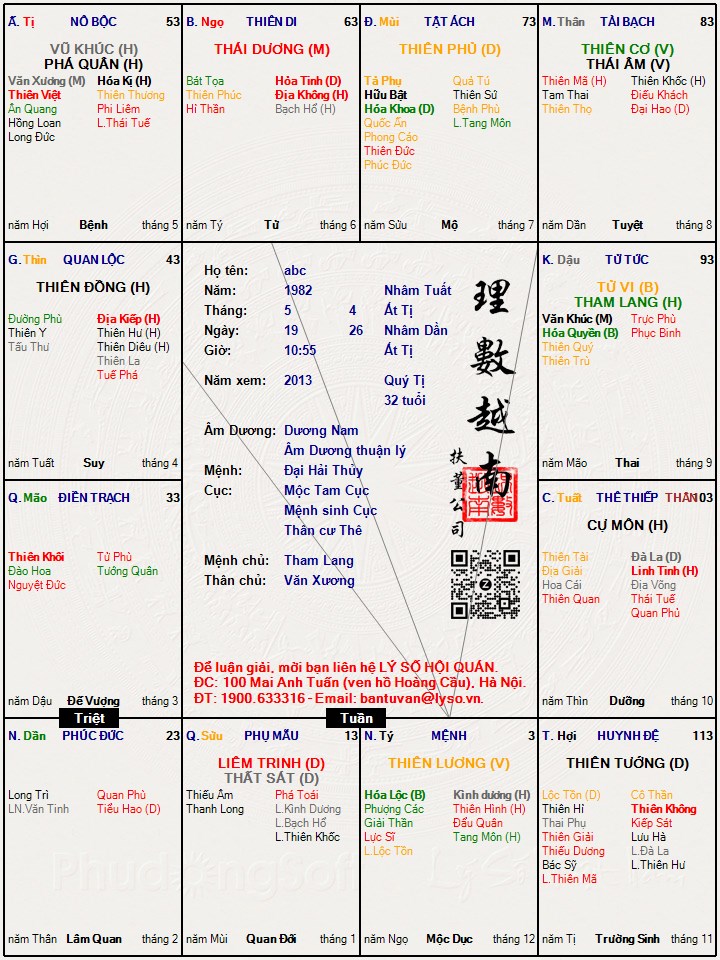 Ấ. Tị NÔ BỘC 53
VŨ KHÚC (H)
PHÁ QUÂN (H)
Văn Xương (M) Hóa Kị (H)
Thiên Việt Thiên Thương
Ân Quang Phi Liêm
Hồng Loan L.Thái Tuế
Long Đức
năm Hợi Bệnh tháng 5
B. Ngọ THIÊN DI 63
THÁI DƯƠNG (M)
Bát Tọa Hỏa Tinh (D)
Thiên Phúc Địa Không (H)
Hỉ Thần Bạch Hổ (H)
năm Tý Tử tháng 6
Đ. Mùi TẬT ÁCH 73
THIÊN PHỦ (D)
Tả Phụ Quả Tú
Hữu Bật Thiên Sứ
Hóa Khoa (D) Bệnh Phù
Quốc Ấn L.Tang Môn
Phong Cáo
Thiên Đức
Phúc Đức
năm Sửu Mộ tháng 7
M. Thân TÀI BẠCH 83
THIÊN CƠ (V)
THÁI ÂM (V)
Thiên Mã (H) Thiên Khốc (H)
Tam Thai Điếu Khách
Thiên Thọ Đại Hao (D)
năm Dần Tuyệt tháng 8
G. Thìn QUAN LỘC 43
THIÊN ĐỒNG (H)
Đường Phù Địa Kiếp (H)
Thiên Y Thiên Hư (H)
Tấu Thư Thiên Diêu (H)
Thiên La
Tuế Phá
năm Tuất Suy tháng 4
Họ tên: abc
Năm: 1982 Nhâm Tuất
Tháng: 5 4 Ất Tị
Ngày: 19 26 Nhâm Dần
Giờ: 10:55 Ất Tị
Năm xem: 2013 Quý Tị
32 tuổi
Âm Dương: Dương Nam
Âm Dương thuận lý
Mệnh: Đại Hải Thủy
Cục: Mộc Tam Cục
Mệnh sinh Cục
Thân cư Thê
Mệnh chủ: Tham Lang
Thân chủ: Văn Xương
理數越南
扶董公司
Để luận giải, mời bạn liên hệ LÝ SỐ HỘI QUÁN.
ĐC: 100 Mai Anh Tuấn (ven hồ Hoàng Cầu), Hà Nội.
ĐT: 1900.633316 - Email: bantuvan@lyso.vn.
K. Dậu TỬ TỨC 93
TỬ VI (B)
THAM LANG (H)
Văn Khúc (M) Trực Phù
Hóa Quyền (B) Phục Binh
Thiên Quý
Thiên Trù
năm Mão Thai tháng 9
Q. Mão ĐIỀN TRẠCH 33
Thiên Khôi Tử Phù
Đào Hoa Tướng Quân
Nguyệt Đức
năm Dậu Đế Vượng tháng 3
C. Tuất THÊ THIẾP THÂN 103
CỰ MÔN (H)
Thiên Tài Đà La (D)
Địa Giải Linh Tinh (H)
Hoa Cái Địa Võng
Thiên Quan Thái Tuế
Quan Phủ
năm Thìn Dưỡng tháng 10
Triệt
Tuần
N. Dần PHÚC ĐỨC 23
Long Trì Quan Phù
LN.Văn Tinh Tiểu Hao (D)
năm Thân Lâm Quan tháng 2
Q. Sửu PHỤ MẪU 13
LIÊM TRINH (D)
THẤT SÁT (D)
Thiếu Âm Phá Toái
Thanh Long L.Kình Dương
L.Bạch Hổ
L.Thiên Khốc
năm Mùi Quan Đới tháng 1
N. Tý MỆNH 3
THIÊN LƯƠNG (V)
Hóa Lộc (B) Kình dương (H)
Phượng Các Thiên Hình (H)
Giải Thần Đẩu Quân
Lực Sĩ Tang Môn (H)
L.Lộc Tồn
năm Ngọ Mộc Dục tháng 12
T. Hợi HUYNH ĐỆ 113
THIÊN TƯỚNG (D)
Lộc Tồn (D) Cô Thần
Thiên Hỉ Thiên Không
Thai Phụ Kiếp Sát
Thiên Giải Lưu Hà
Thiếu Dương L.Đà La
Bác Sỹ L.Thiên Hư
L.Thiên Mã
năm Tị Trường Sinh tháng 11